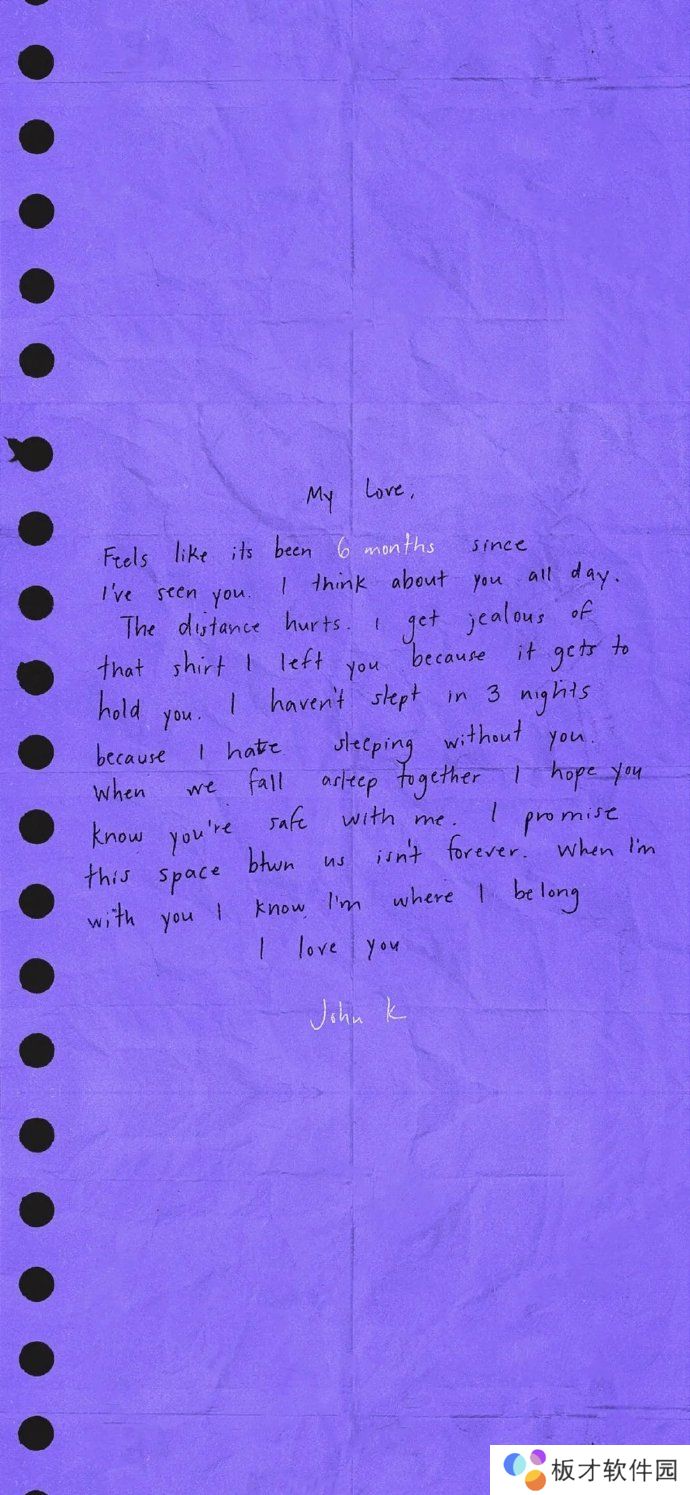 My Love,
Feels like its been 6 months since
I've seen you. I think about you all day.
The distance hurts. I get jealous of
that shirt I left you because it gets to
hold you. I haven't slept in 3 nights
because I hate sleeping without you.
When we fall asleep together I hope you
know you're safe with me. I promise
this space btwn us isn't forever. When I'm
with you I know I'm where I belong
I love you
John K
板才软件园